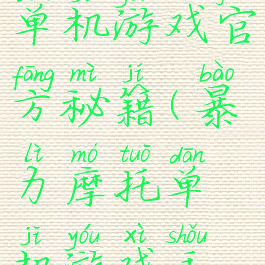 单机游戏官
fāng mì jí bào
方秘籍(暴
lì mó tuō dān
力摩托单
jī yóu xì shǒu
机游戏手